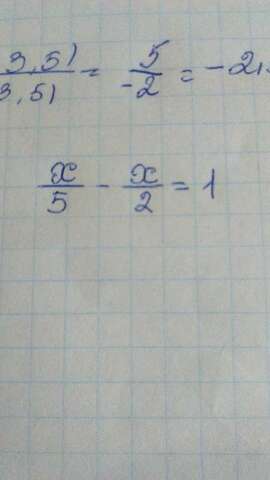 3,51/3,51 = 5/-2 = -2
x/5 - x/2 = 1